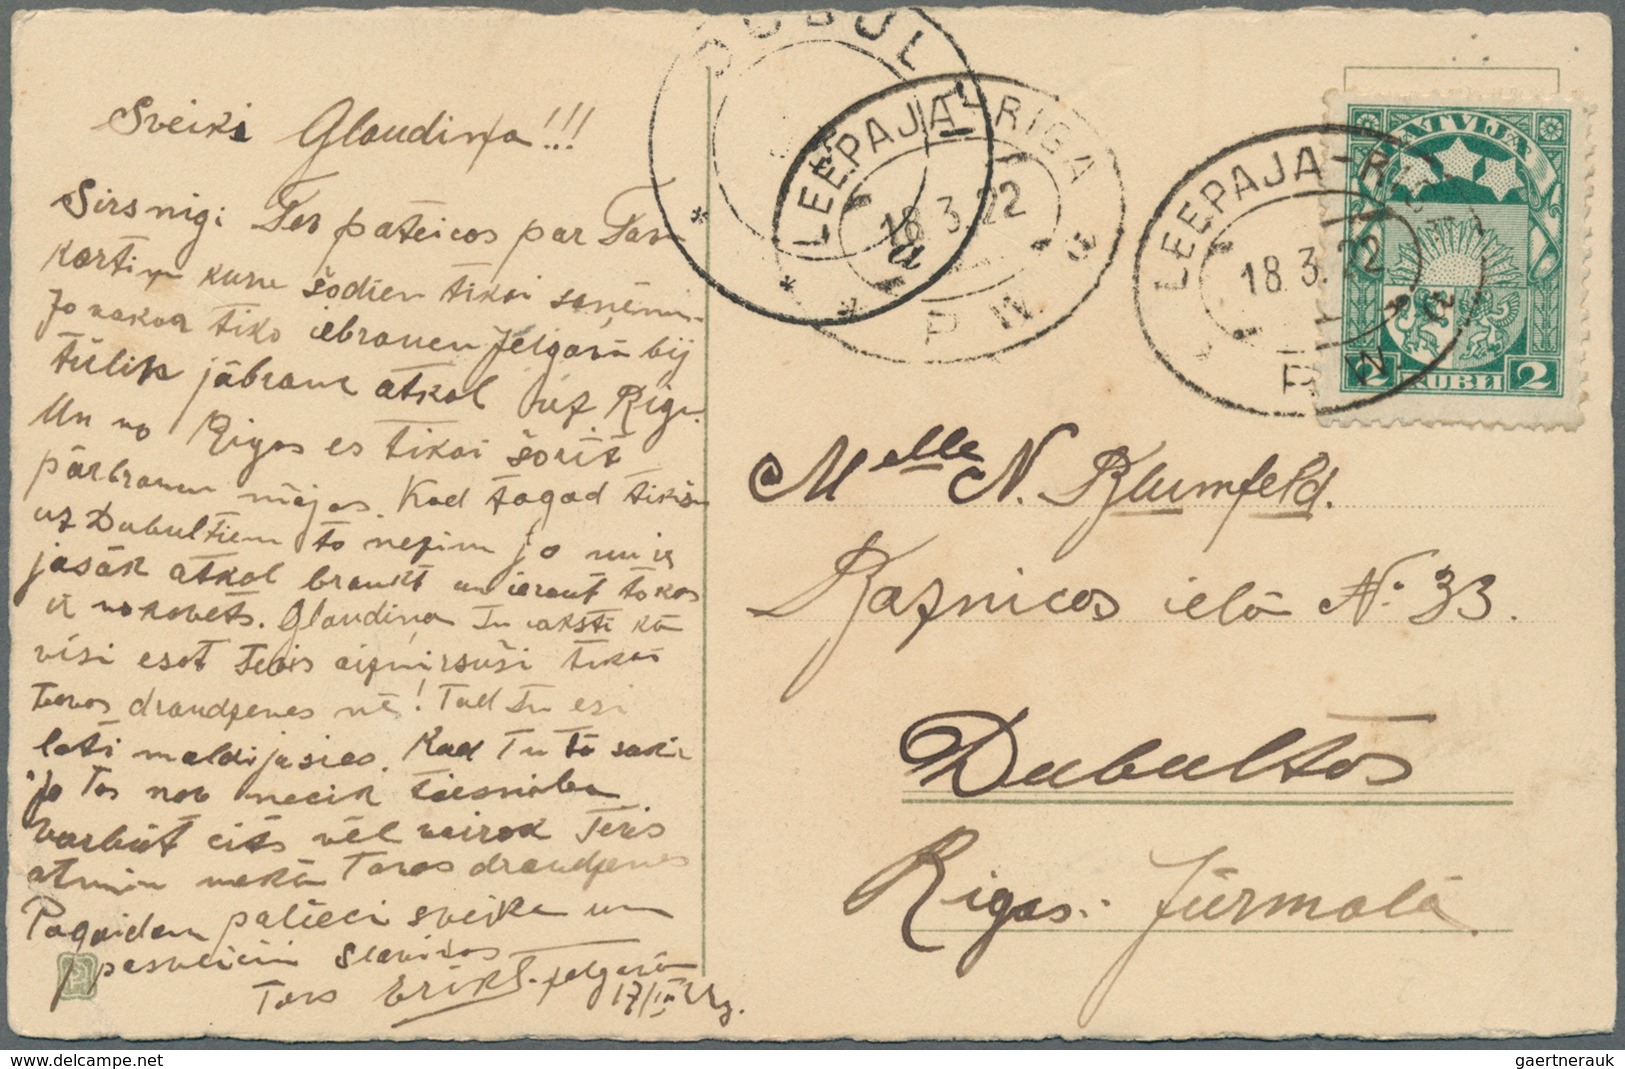 Sveiki Glaudiņa!!!
Sirsnigi Tev pateicos par Tavu
kartiņu kuru šodien tikai saņēmu.
Jo vakar tiko iebraucu Jelgavā bij
tūliņ jābrauc atkal uz Rigu.
Un no Rigas es tikai šorīt
pārbraucu mājas. Kad tagad tikšu
uz Dubultiem to nezinu jo
atkal braukt un
Glaudiņa Tu raksti kā
visi esot Tevis aizmirsuši tikai
Tavas draudzenes nē! Tad Tu esi
loti maldijusies. Kad Tu tā saki
Jo tas nav necik taisniba
varbūt cits vēl vairak Tevis
atmin nekā Tavas draudzenes
Pagaidam palieci sveika un
Tavs Erik Jelgavā
17/III 22g.
DUBUL
LEEPAJA-RIGA
18 3.22
a
P W
LEEPAJA-RIG
18 3.22
P W
LATVIJA
2 RUBLI 2
Melle N. Blumfeld.
Baznicas ielā No 33.
Dubultos
Rigas. Jūrmalā.
gaertnerauk@yahoo.com